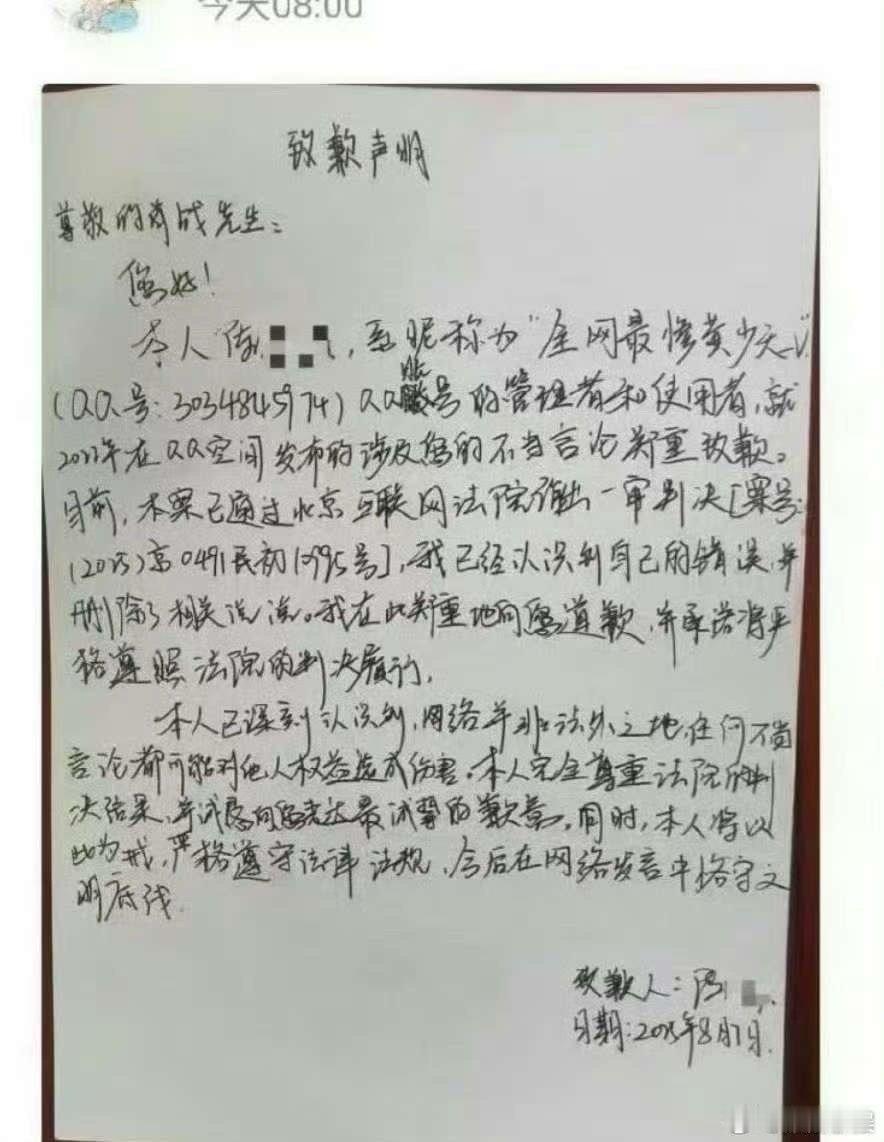 今天08:00
致歉声明
尊敬的肖战先生：
您好！
本人陈，系昵称为“全网最惨黄少天_V”
（QQ号：3034845974）QQ账号的管理者和使用者，就
2022年在QQ空间发布的涉及您的不当言论郑重致歉。
目前，本案已通过北京互联网法院作出一审判决[案号：
(2025)京0491民初995号]，我已经认识到自己的错误，并
删除了相关说说。我在此郑重地向您道歉，并承诺将严
格遵照法院的判决履行。
本人已深刻认识到，网络并非法外之地，任何不当
言论都可能对他人权益造成伤害。本人完全尊重法院的判
决结果，并诚恳向您表达最诚挚的歉意。同时，本人将以
此为戒，严格遵守法律法规，今后在网络发言中恪守文
明底线.
致歉人：陈
日期：2025年8月7日.